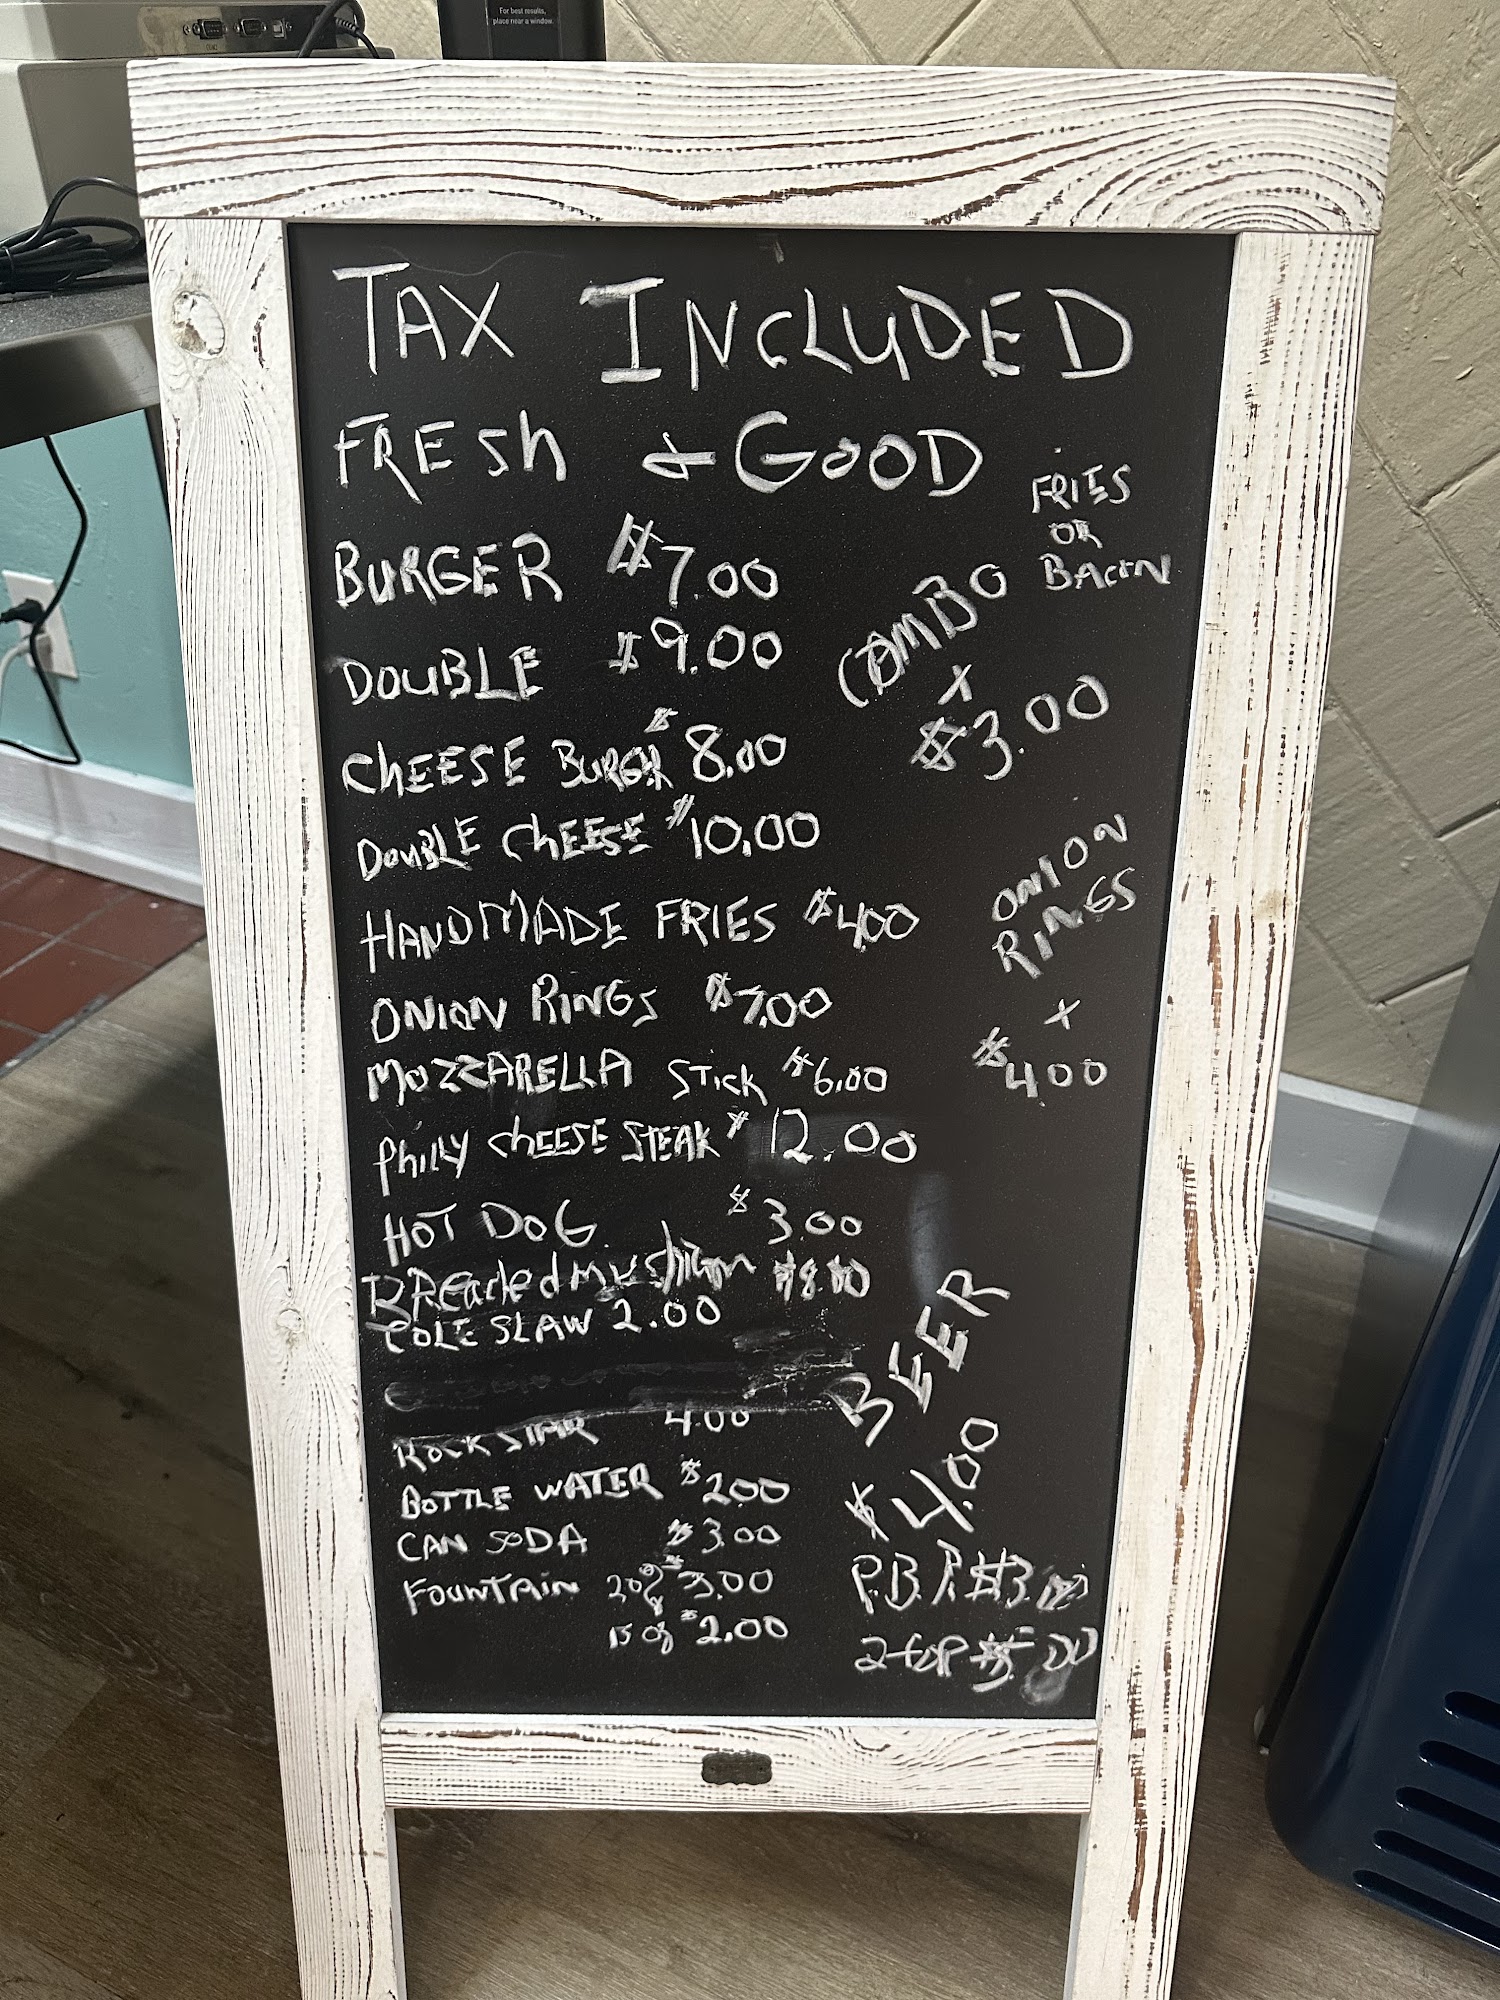 For best results,
place near a window.
TAX INCLUDED
FRESH & GOOD
BURGER $7.00
DOUBLE $9.00
CHEESE BURGER $8.00
DOUBLE CHEESE $10.00
HANDMADE FRIES $400
ONION RINGS $7.00
MOZZARELLA STICK $6.00
PHILLY CHEESE STEAK $12.00
HOT DOG $3.00
BREaded mushroom $8.00
COLE SLAW 2.00
ROCK STAR 4.00
BOTTLE WATER $200
CAN SODA $3.00
FOUNTAIN 20oz $3.00
15 oz $2.00
FRIES
OR
BACON
COMBO
+
$3.00
ONION
RINGS
+
$400
BEER
$4.00
P.B.R $3.00
2 for $5 00